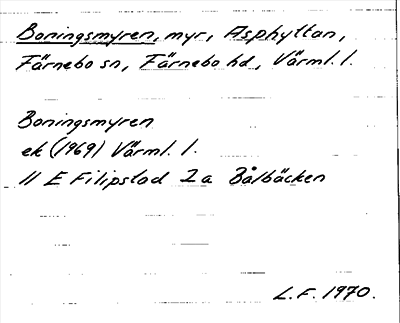 Boningsmyren, myr, Asphyttan,
Färnebo sn, Färnebo hd., Värml. l.
Boningsmyren
ek (1969) Värml. l.
11 E Filipstad 2 a Bålbäcken
L.F. 1970.